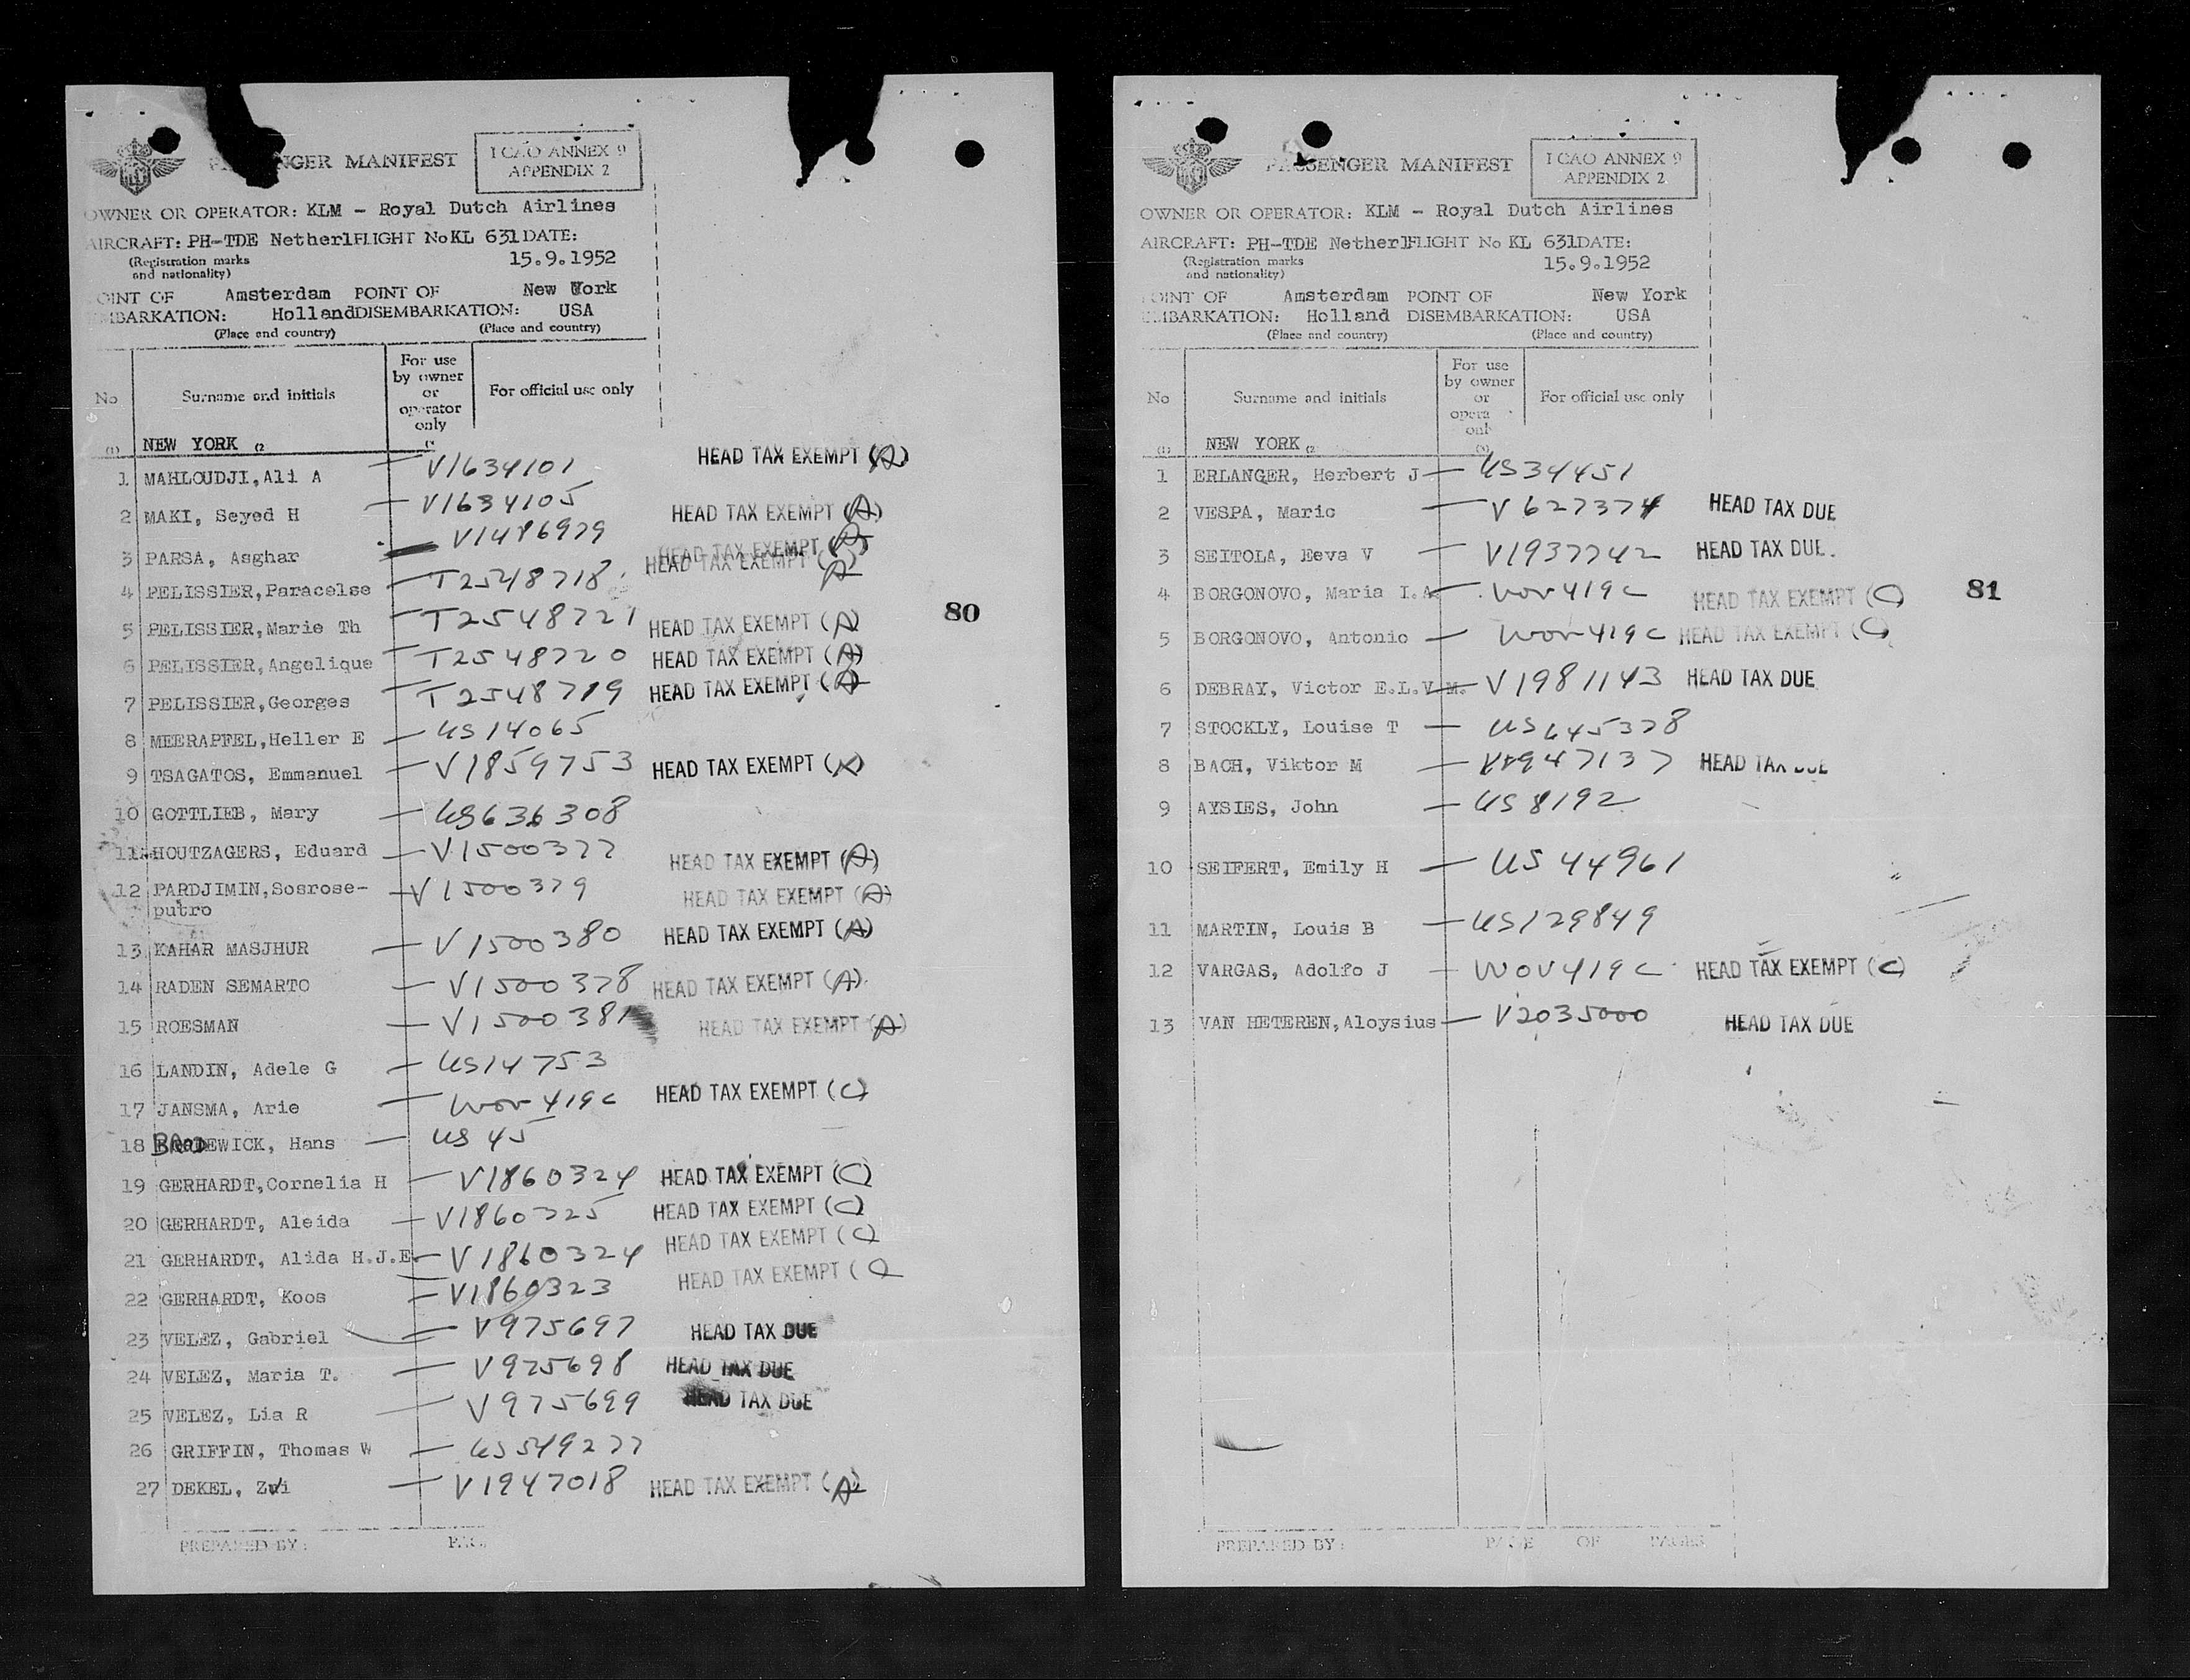 NGER MANIFEST
ICAO ANNEX 9
APPENDIX 2
OWNER OR OPERATOR: KLM - Royal Dutch Airlines
AIRCRAFT: PH-TDE Netherl FLIGHT No KL 631 DATE:
(Registration marks
and nationality)
15.9.1952
OINT OF Amsterdam POINT OF New York
MBARKATION: Holland DISEMBARKATION: USA
(Place and country) (Place and country)
No Surname and initials For use by owner or operator only For official use only
(1) NEW YORK (2
1 MAHLOUDJI, Ali A — V1634101 HEAD TAX EXEMPT (A)
2 MAKI, Seyed H — V1634105 HEAD TAX EXEMPT (A)
3 PARSA, Asghar — V1486979 HEAD TAX EXEMPT (A)
4 PELISSIER, Paracelse — T2548718 HEAD TAX EXEMPT (A)
5 PELISSIER, Marie Th — T2548721 HEAD TAX EXEMPT (A)
6 PELISSIER, Angelique — T2548720 HEAD TAX EXEMPT (A)
7 PELISSIER, Georges — T2548719 HEAD TAX EXEMPT (A)
8 MEERAPFEL, Heller E — US14065
9 TSAGATOS, Emmanuel — V1859753 HEAD TAX EXEMPT (A)
10 GOTTLIEB, Mary — US636308
11 HOUTZAGERS, Eduard — V1500377 HEAD TAX EXEMPT (A)
12 PARDJIMIN, Sosrose- — V1500379 HEAD TAX EXEMPT (A)
putro
13 KAHAR MASJHUR — V1500380 HEAD TAX EXEMPT (A)
14 RADEN SEMARTO — V1500378 HEAD TAX EXEMPT (A)
15 ROESMAN — V1500381 HEAD TAX EXEMPT (A)
16 LANDIN, Adele G — US14753
17 JANSMA, Arie — wov 419c HEAD TAX EXEMPT (C)
18 EWICK, Hans — US 45
19 GERHARDT, Cornelia H — V1860324 HEAD TAX EXEMPT (C)
20 GERHARDT, Aleida — V1860325 HEAD TAX EXEMPT (C)
21 GERHARDT, Alida H.J.E. — V1860324 HEAD TAX EXEMPT (C)
22 GERHARDT, Koos — V1860323 HEAD TAX EXEMPT (C
23 VELEZ, Gabriel — V975697 HEAD TAX DUE
24 VELEZ, Maria T. — V975698 HEAD TAX DUE
25 VELEZ, Lia R — V975699 HEAD TAX DUE
26 GRIFFIN, Thomas W — US549277
27 DEKEL, Zvi — V1947018 HEAD TAX EXEMPT (A)
80
PREPARED BY: PAG
PASSENGER MANIFEST
ICAO ANNEX 9
APPENDIX 2
OWNER OR OPERATOR: KLM - Royal Dutch Airlines
AIRCRAFT: PH-TDE Netherl FLIGHT No KL 631 DATE:
(Registration marks
and nationality)
15.9.1952
OINT OF Amsterdam POINT OF New York
MBARKATION: Holland DISEMBARKATION: USA
(Place and country) (Place and country)
No Surname and initials For use by owner or opera onl For official use only
(1) NEW YORK (2
1 ERLANGER, Herbert J — US34451
2 VESPA, Mario — V627374 HEAD TAX DUE
3 SEITOLA, Eeva V — V1937742 HEAD TAX DUE.
4 BORGONOVO, Maria I.A — wov 419c HEAD TAX EXEMPT (C)
5 BORGONOVO, Antonio — wov 419c HEAD TAX EXEMPT (C)
6 DEBRAY, Victor E.L.V.M. — V1981143 HEAD TAX DUE
7 STOCKLY, Louise T — US645378
8 BACH, Viktor M — V1947137 HEAD TAX DUE
9 AYSIES, John — US8192
10 SEIFERT, Emily H — US44961
11 MARTIN, Louis B — US129849
12 VARGAS, Adolfo J — WOV419c HEAD TAX EXEMPT (C)
13 VAN HETEREN, Aloysius — V2035000 HEAD TAX DUE
81
PREPARED BY: PAGE OF PAGES